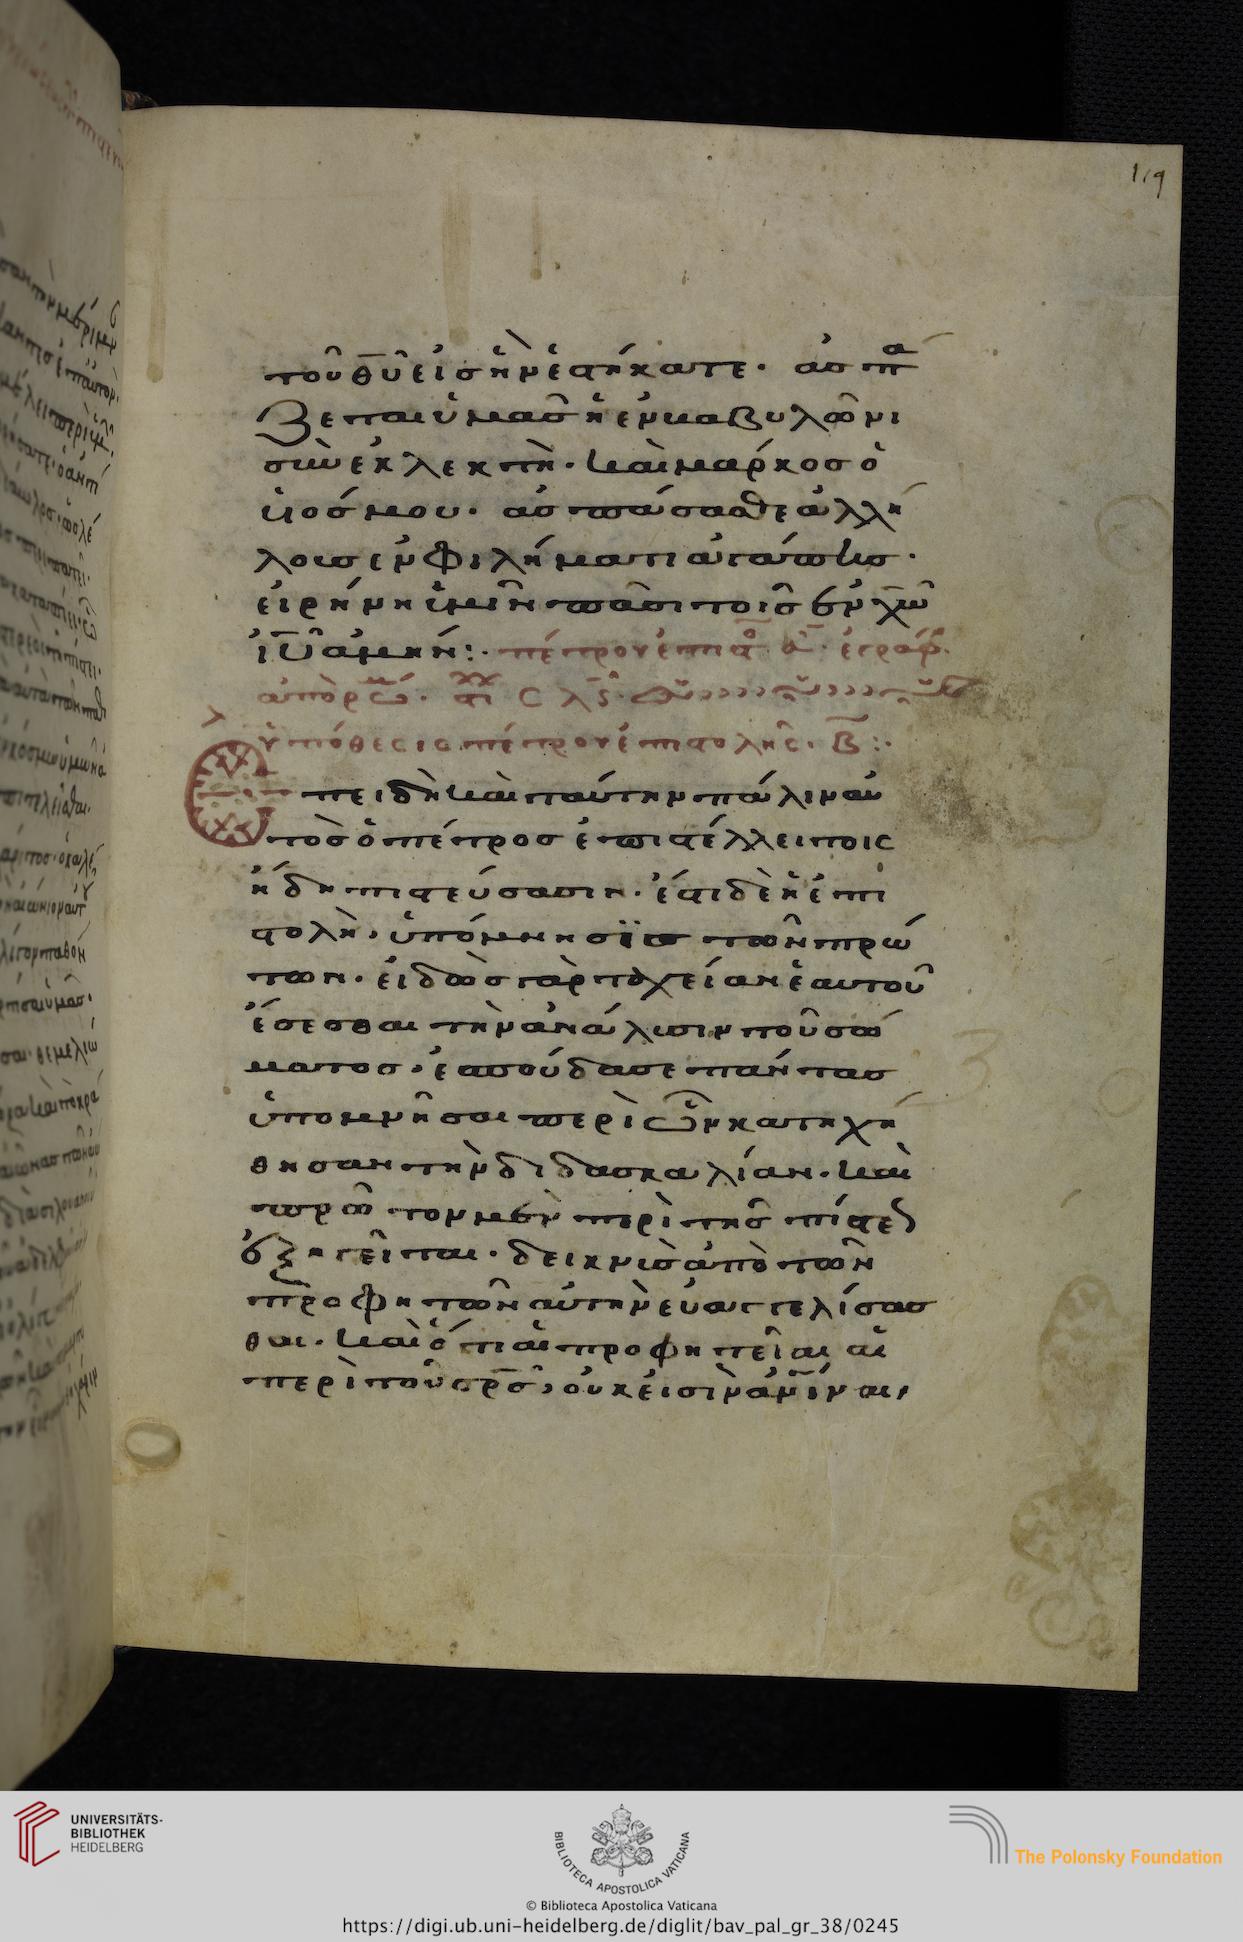 119
τοῦ θῦ εἰς ἣν ἑστήκατε. ἀσπά
ζεται ὑμᾶς ἡ ἐν βαβυλῶνι
συνεκλεκτὴ. καὶ μάρκος ὁ
ὑιός μου. ἀσπάσασθε ἀλλή
λοις ἐν φιλήματι ἀγάπης.
εἰρήνη ὑμῖν πᾶσι τοῖς ἐν χῶ
ἰῦ ἀμήν:. πέτρου ἐπιστο α. ἐγράφ.
ἀπὸ ῥώμ. στι ϲλϛ.
ὑπόθεσις πέτρου ἐπιστολῆς. β:.
Ἐπειδὴ καὶ ταύτην πάλιν αὐ
τὸς ὁ πέτρος ἐπιστέλλει τοῖς
ἤδη πιστεύσασιν. ἔστι δὲ ἡ ἐπι
στολὴ. ὑπόμνησϊς τῶν πρώ
των. εἰδὼς γὰρ ταχείαν ἑαυτοῦ
ἔσεσθαι τὴν ἀνάλυσιν τοῦ σώ
ματος. ἐσπούδασε πάντας
ὑπομνῆσαι περὶ ὧν κατηχή
θησαν τὴν διδασκαλίαν. καὶ
πρῶτον μὲν περὶ τῆς πίστεως
ἐξηγεῖται. δεικνὺς ἀπὸ τῶν
προφητῶν αὐτὴν εὐαγγελίσασ
θαι. καὶ ὅτι αἱ προφητεῖαι αἱ
περὶ τοῦ σρς, οὐκ εἰσὶν ἀνιναι,
UNIVERSITÄTS-
BIBLIOTHEK
HEIDELBERG
BIBLIOTECA APOSTOLICA VATICANA
The Polonsky Foundation
© Biblioteca Apostolica Vaticana
https://digi.ub.uni-heidelberg.de/diglit/bav_pal_gr_38/0245